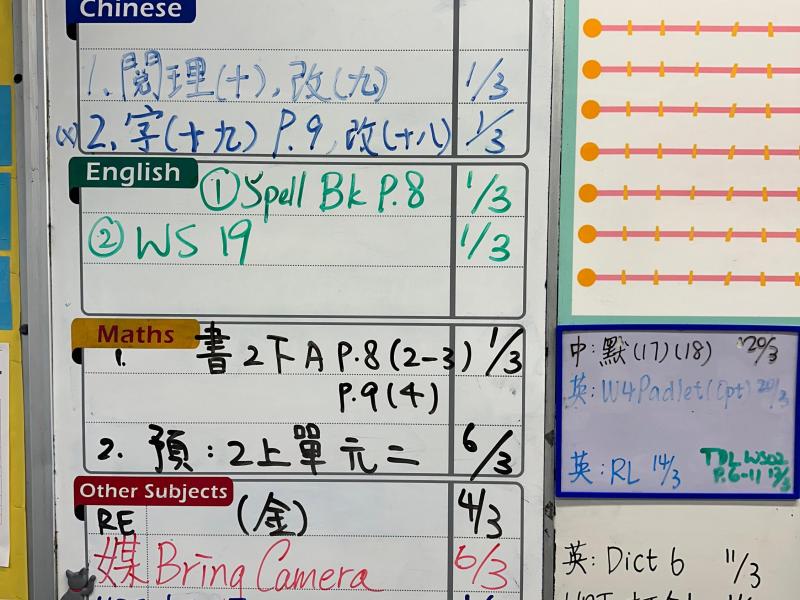 Chinese
1. 閱理(十), 改(九) 1/3
(x) 2. 字(十九) P.9, 改(十八) 1/3
English
① Spell Bk P.8 1/3
② WS 19 1/3
Maths
1. 書 2下A P.8 (2-3) 1/3
P.9 (4)
2. 預:2上單元二 6/3
Other Subjects
RE (金) 4/3
媒 Bring Camera 6/3
中:默(17)(18) 20/3
英:W4 Padlet (Opt) 20/3
英:RL 14/3
TDL WS02
P.6-11 12/3
英:Dict 6 11/3